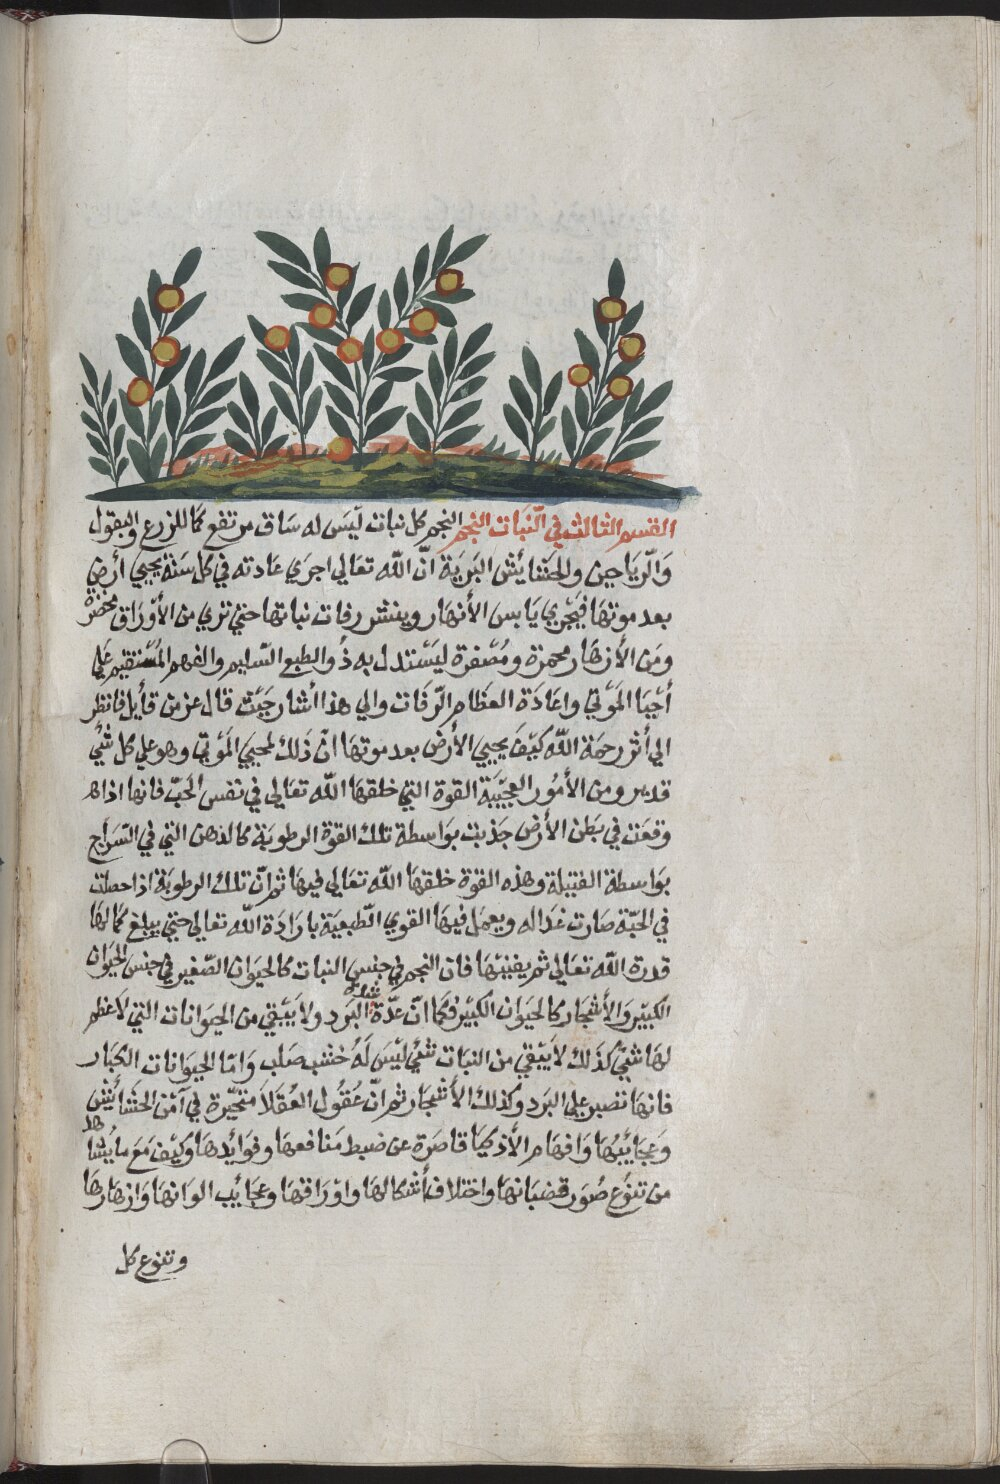 القسم الثالث في النّبَات النجم النجم كل نبات ليَس له سَاق مرتفع كالزرع والبقول
وَالرّيَاحين والحَشايش البَرية انّ الله تعَالي اجرَي عَادته في كل سَنة يحيي أرض
بعد موتهَا فيَجري يَابس الأنهَار وينشر رفات نباتها حتي تري من الأوْرَاق مخضرْ
ومن الأزهَار محمرة ومُصْفرة ليَسْتدل به ذُو الطبع السّليم والفهم المُسْتقيم عَلي
أحْيَا الموَتي واعَادَة العظَام الرّفَات والي هذا أشَار حَيْث قال عز من قايل فانظر
الي أثر رحمَة الله كيْفَ يحيي الأرض بعد موتهَا انّ ذَلك لمحيي الموَتي وهو علي كل شيْي
قدير ومن الأمُور العجيَبَة القوة التي خلقهَا الله تعَالي في نفس الحَبّ فانها اذا هـ
وقعَت في بَطن الأرض جَذبت بوَاسطة تلك القوّة الرطوبَة كالدهن التي في السّرَاج
بوَاسطة الفتيلة وهذه القوة خلقهَا الله تعَالي فيها ثم انّ تلك الرطوبَة اذا حصلت
في الحَبّة صَارت غدَا له ويعمَل فيهَا القوي الطّبعيَة بارَادَة الله تعَالي حتي يبلغ كمَالها
قدرة الله تعَالي ثم يفنيْهَا فان النجم في جنس النبات كالحيوَان الصّغير في جنس الحيوَان
الكبيْر وَالأشجَار كالحيوَان الكبيْر فكمَا انّ عدّة شدة البَرد ولاَ يَبْقي من الحيوَانات التي لاَ عظم
لهَا شيْي كذَلك لاَ يَبْقي من النبَات شيْي ليْسَ لَهُ خشب صَلب وَامّا الحيوَانات الكبَار
فانهَا تصبر علي البَرد وكذلك الأشجَار ثم انّ عُقُول العُقَلاَ متحيّرة في أمْر الحشَايْش
وَعجَايْبهَا وَافهَام الأذكيَا قاصَرة عن ضبط مَنافعهَا وفوَايدهَا وكيَفْ مَع ما يُشاهد
من تنوّع صُوَر قضبَانهَا واختلاف أشكالهَا واوْرَاقهَا وعجَايْب الوَانهَا وَازهَارهَا
وتنوع كل